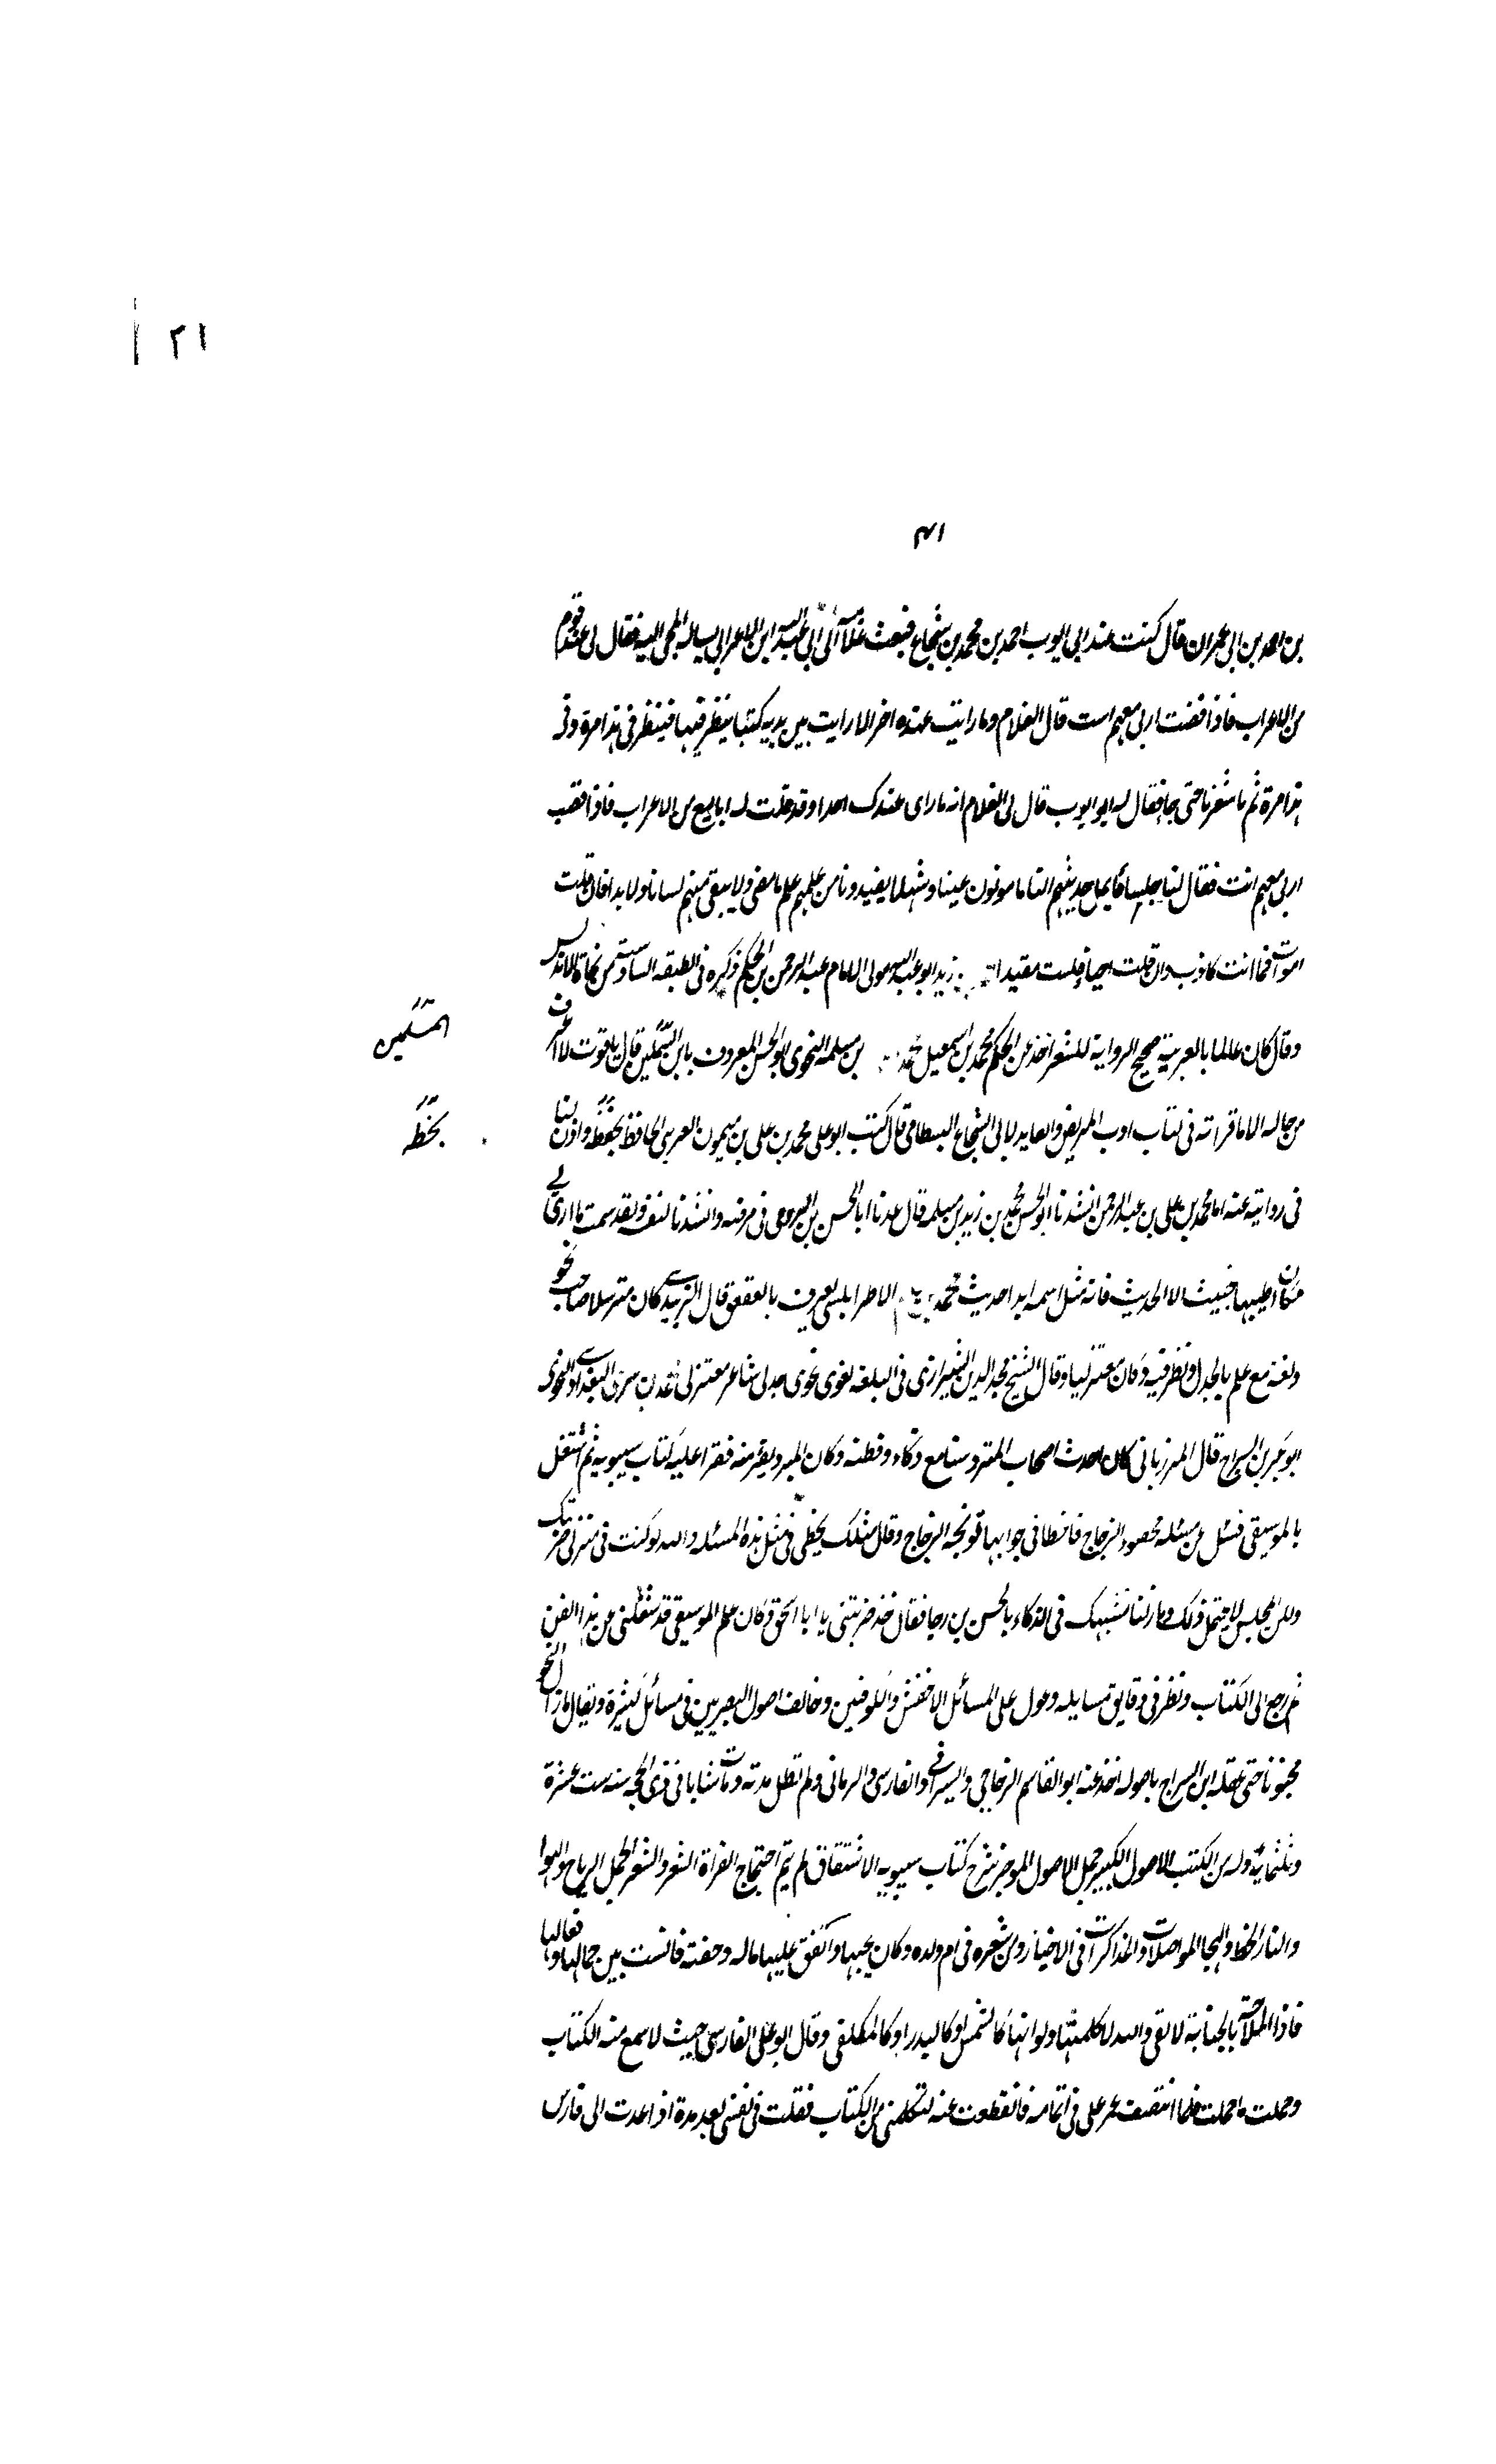 ٢١
٤١
بن احمد بن ابى عمران قال كنت عند ابى ايوب احمد بن محمد بن شجاع فبعث غلامه الى ابى عبد الله ابن الاعرابى يساله المجى اليه فقال لى عندى قوم
من الاعراب فاذا قضيت اربى معهم است قال الغلام وما رايت عنده احدا الا رايت بين يديه كتبا ينظر فيها فينظر فى هذا مرة وفى
هذا مرة ثم ما شعرنا حتى جا فقال له ابو ايوب قال لى الغلام انه ما راى عندك احدا وقد قلت له انا مع من الاعراب فاذا قضيت
اربى معهم اتيت فقال لنا جلسا ما يمل حديثهم البا مامونون غيبا ومشهدا يفيدونا من علمهم علم ما مضى ولا يبقى منهم لسانا ولا يدا فان قلت
اموات فما انت كاذب وان قلت احيا فلست مفيدا زيد ابو عبد الله مولى الامام عبد الرحمن بن الحكم ذكره فى الطبقه السادسة من نحاة الاندلس
وقال كان عالما بالعربية صحيح الرواية للشعر اخذ عن الحكم محمد بن اسمعيل محمد بن مسلمه النحوى ابو الحسن المعروف بابن السمكين قال ياقوت لا اعرف
المسكين
من حاله الا ما قراته فى كتاب ادب المريض والعايد لابى الشجاع البسطامى قال كتب ابو على محمد بن على بن ميمون العرسى الحافظ بخطه واذن لنا
بخطه
فى روايته عنه اما محمد بن على بن عبد الرحمن انشدنا ابو الحسن محمد بن زيد بن مسلمه قال عدنا ابا الحسن بن البروجى فى مرضه وانشدنا لنفسه ولقد سمت مااربى
فكان اطيبها خبيث الا الحديث فانه مثل اسمه ابدا حديث محمد الاطرابلسى يعرف بالعقعق قال الزبيدى كان مترسلا صاحب نحو
ولغة مع علم بالجدل ونظر فيه وكان معتزليا وقال الشيخ مجد الدين الشيرازى فى البلغه لغوى نحوى جدلى شاعر معتزلى محمد بن سرى البغدادى النحوى
ابو بكر بن السراج قال المرزبانى كان احدث اصحاب المبرد سنا مع ذكاء وفطنه وكان المبرد يقربه فقرا عليه كتاب سيبويه ثم اشتغل
بالموسيقى فسئل عن مسئله بحضور الزجاج فاخطا فى جوابها فوبخه الزجاج وقال مثلك يخطى فى مثل هذه المسئله والله لو كنت فى منزلى ضربتك
ولكن المجلس لا يحتمل ذلك وما زلنا نشبهك فى الذكاء بالحسن بن رجا فقال قد ضربتنى يا ابا اسحق وكان علم الموسيقى قد شغلنى عن هذا الفن
ثم رجع الى الكتاب ونظر فى دقايق مسايله وعول على المسائل الاخفش والكوفيين وخالف اصول البصريين فى مسائل كثيرة ويقال ما زال النحو
مجنونا حتى عقله ابن السراج باصوله اخذ عنه ابو القاسم الزجاجى والسيرافى والفارسى والرمانى ولم تطل مدته ومات شابا فى ذى الحجه سنه ست عشرة
وثلثمايه وله من الكتب الاصول الكبير جمل الاصول الموجز شرح كتاب سيبويه الاشتقاق لم يتم احتجاج القراة الشعر والشعرا الجمل الرياح والهوا
والنار الخط والهجا المواصلات والمذاكرات فى الاخبار ومن شعره فى ام ولده وكان يحبها وانفق عليها ماله وجفته قايست بين جمالها وفعالها
فاذا الملاحة بالخيانة لا تفى والله لا كلمتها ولو انها كالشمس او كالبدر او كالمكتفى وقال ابو على الفارسى جيت لاسمع منه الكتاب
وحملت ما حملت فلما انتصف عسر على فى اتمامه فانقطعت عنه لتمكنى من الكتاب فقلت فى نفسى بعد مدة اذا عدت الى فارس